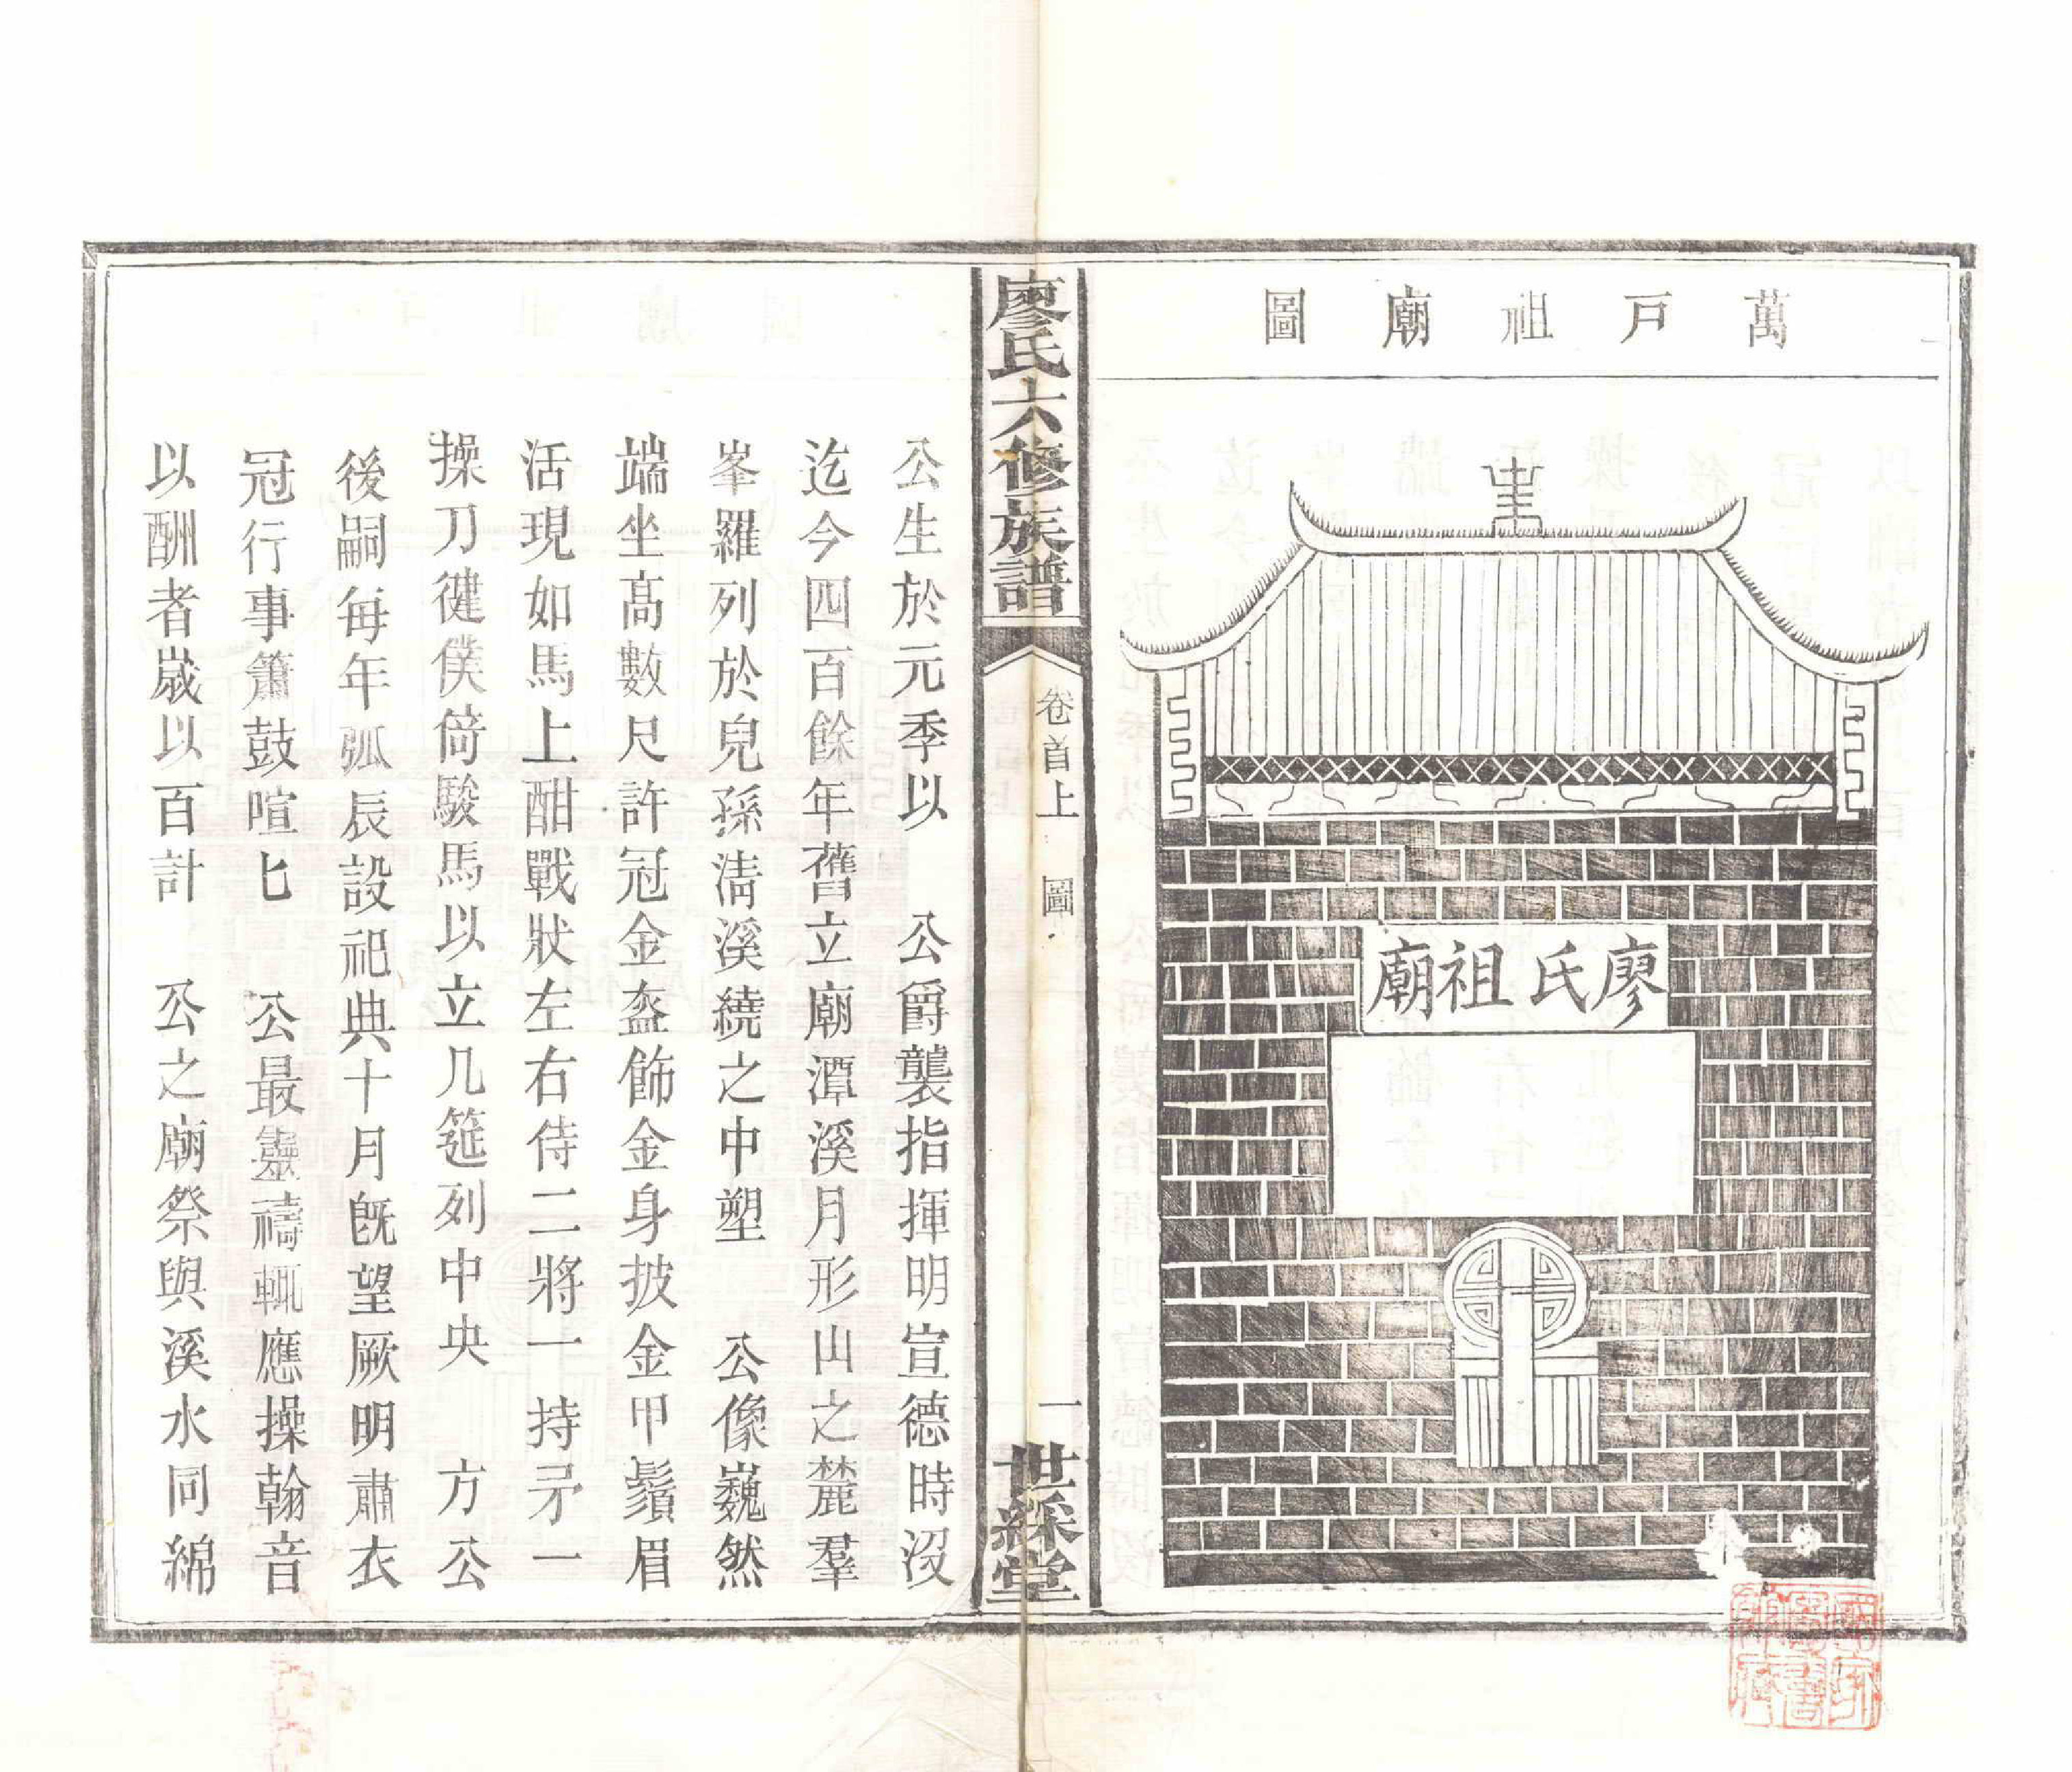 萬戸祖廟圖
廖氏祖廟
廖氏六修族譜
卷首上 圖
一
世綵堂
公生於元季以 公爵襲指揮明宣德時沒
迄今四百餘年舊立廟潭溪月形山之麓羣
峯羅列於兒孫淸溪繞之中塑 公像巍然
端坐高數尺許冠金盔飾金身披金甲鬚眉
活現如馬上酣戰狀左右侍二將一持矛一
操刀健僕倚駿馬以立几筵列中央 方公
後嗣每年弧辰設祀典十月旣望厥明肅衣
冠行事簫鼓喧匕 公最靈禱輒應操翰音
以酬者歲以百計 公之廟祭與溪水同綿